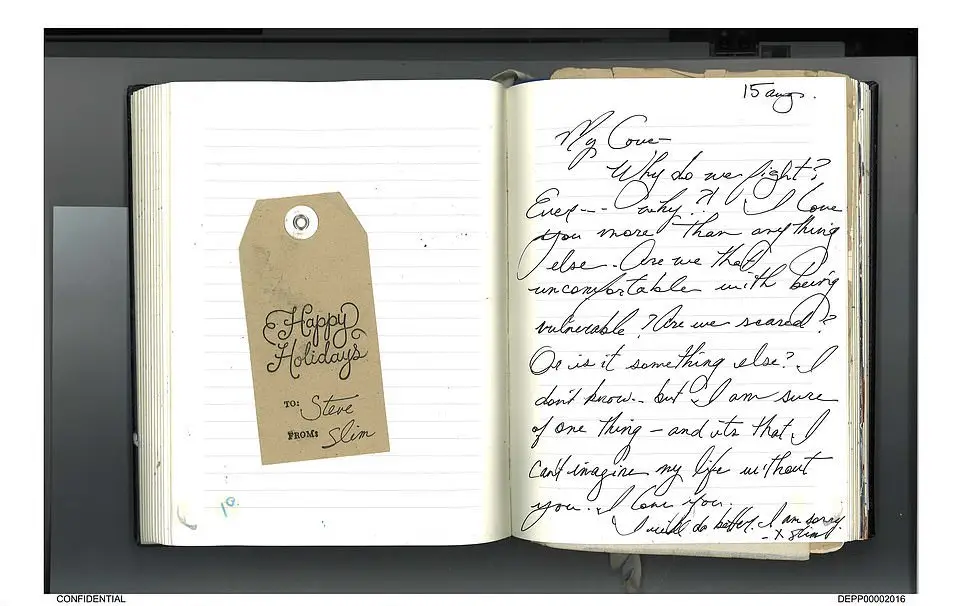 Happy
Holidays
TO: Steve
FROM: Slim
10
15 aug.
My Love—
Why do we fight?
Ever-- why?! I love
you more than anything
else. Are we that
uncomfortable with being
vulnerable? Are we scared?
Or is it something else? I
don't know.. but I am sure
of one thing – and its that I
can't imagine my life without
you. I love you.
I will do better. I am sorry.
-x Slim
CONFIDENTIAL
DEPP00002016